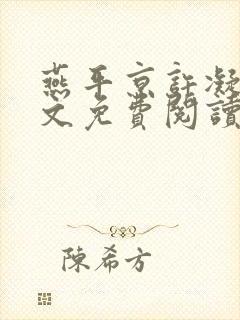 燕平京許凝
文免費閱讀
陳希方